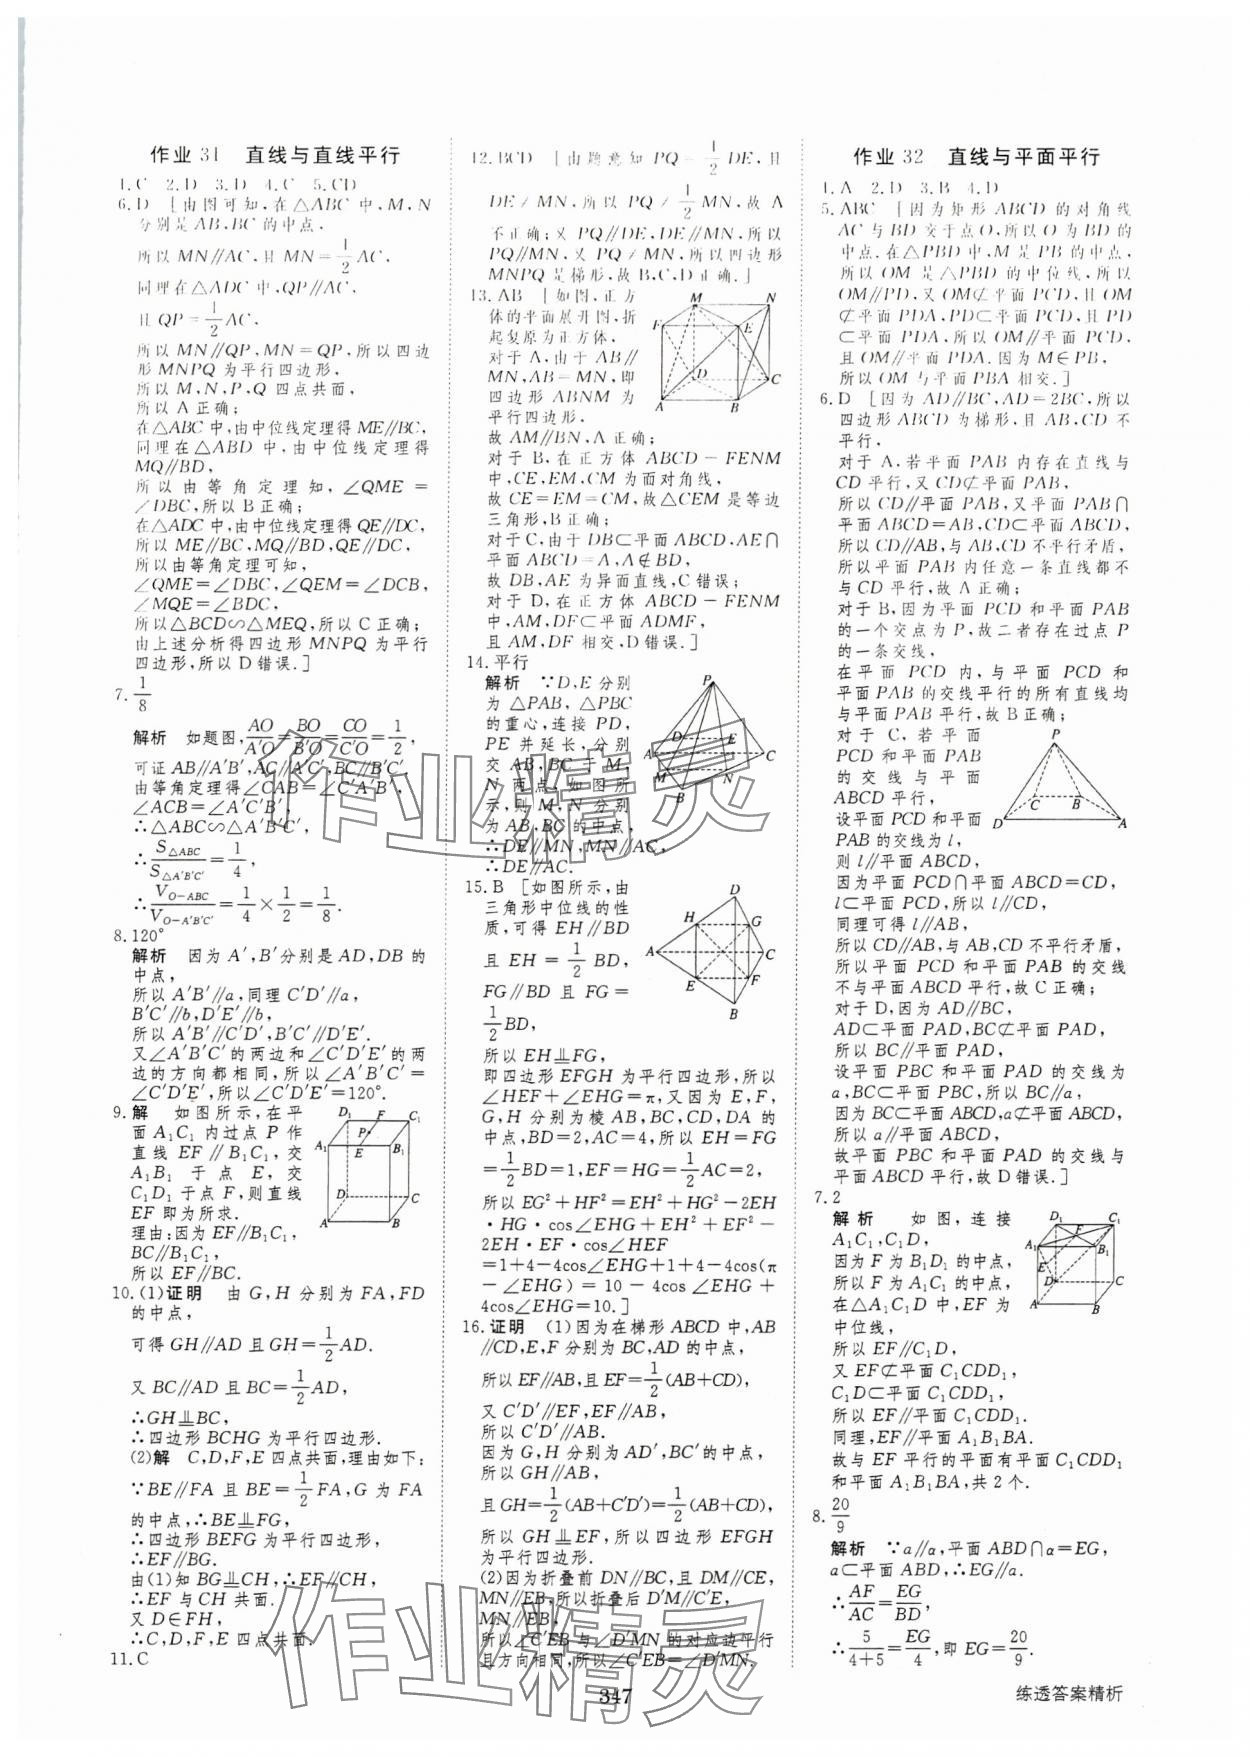 作业 31　直线与直线平行
1.C　2.D　3.D　4.C　5.CD
6.D　[由图可知,在△ABC 中,M,N
分别是 AB,BC 的中点.
所以 MN//AC,且 MN=1/2 AC,
同理在△ADC 中,QP//AC,
且 QP=1/2 AC,
所以 MN//QP,MN=QP,所以四边
形 MNPQ 为平行四边形,
所以 M,N,P,Q 四点共面,
所以 A 正确;
在△ABC 中,由中位线定理得 ME//BC,
同理在△ABD 中,由中位线定理得
MQ//BD,
所以由等角定理知,∠QME=
∠DBC,所以 B 正确;
在△ADC 中,由中位线定理得 QE//DC,
所以 ME//BC,MQ//BD,QE//DC,
所以由等角定理可知,
∠QME=∠DBC,∠QEM=∠DCB,
∠MQE=∠BDC,
所以△BCD∽△MEQ,所以 C 正确;
由上述分析得四边形 MNPQ 为平行
四边形,所以 D 错误.]
7.1/8
解析　如题图,AO/A′O=BO/B′O=CO/C′O=1/2,
可证 AB//A′B′,AC//A′C′,BC//B′C′.
由等角定理得∠CAB=∠C′A′B′,
∠ACB=∠A′C′B′,
∴△ABC∽△A′B′C′,
∴S△ABC/S△A′B′C′=1/4,
∴V O-ABC/V O-A′B′C′=1/4×1/2=1/8.
8.120°
解析　因为 A′,B′分别是 AD,DB 的
中点,
所以 A′B′//a,同理 C′D′//a,
B′C′//b,D′E′//b,
所以 A′B′//C′D′,B′C′//D′E′.
又∠A′B′C′的两边和∠C′D′E′的两
边的方向都相同,所以∠A′B′C′=
∠C′D′E′,所以∠C′D′E′=120°.
9.解　如图所示,在平
面 A₁C₁ 内过点 P 作
直线 EF//B₁C₁,交
A₁B₁ 于点 E,交
C₁D₁ 于点 F,则直线
EF 即为所求.
理由:因为 EF//B₁C₁,
BC//B₁C₁,
所以 EF//BC.
10.(1)证明　由 G,H 分别为 FA,FD
的中点,
可得 GH//AD 且 GH=1/2 AD.
又 BC//AD 且 BC=1/2 AD,
∴GH⊥∥BC,
∴四边形 BCHG 为平行四边形.
(2)解　C,D,F,E 四点共面,理由如下:
∵BE//FA 且 BE=1/2 FA,G 为 FA
的中点,∴BE⊥∥FG,
∴四边形 BEFG 为平行四边形,
∴EF//BG.
由(1)知 BG⊥∥CH,∴EF//CH,
∴EF 与 CH 共面.
又 D∈FH,
∴C,D,F,E 四点共面.
11.C
12.BCD　[由题意知 PQ=1/2 DE,且
DE≠MN,所以 PQ≠1/2 MN,故 A
不正确;又 PQ//DE,DE//MN,所以
PQ//MN,又 PQ≠MN,所以四边形
MNPQ 是梯形,故 B,C,D 正确.]
13.AB　[如图,正方
体的平面展开图,折
起复原为正方体,
对于 A,由于 AB//
MN,AB=MN,即
四边形 ABNM 为
平行四边形.
故 AM//BN,A 正确;
对于 B,在正方体 ABCD-FENM
中,CE,EM,CM 为面对角线,
故 CE=EM=CM,故△CEM 是等边
三角形,B 正确;
对于 C,由于 DB⊂平面 ABCD,AE∩
平面 ABCD=A,A∉BD,
故 DB,AE 为异面直线,C 错误;
对于 D,在正方体 ABCD-FENM
中,AM,DF⊂平面 ADMF,
且 AM,DF 相交,D 错误.]
14.平行
解析　∵D,E 分别
为△PAB,△PBC
的重心,连接 PD,
PE 并延长,分别
交 AB,BC 于 M,
N 两点,如图所
示,则 M,N 分别
为 AB,BC 的中点,
∴DE//MN,MN//AC,
∴DE//AC.
15.B　[如图所示,由
三角形中位线的性
质,可得 EH//BD
且 EH=1/2 BD,
FG//BD 且 FG=
1/2 BD,
所以 EH⊥∥FG,
即四边形 EFGH 为平行四边形,所以
∠HEF+∠EHG=π,又因为 E,F,
G,H 分别为棱 AB,BC,CD,DA 的
中点,BD=2,AC=4,所以 EH=FG
=1/2 BD=1,EF=HG=1/2 AC=2,
所以 EG²+HF²=EH²+HG²-2EH
·HG·cos∠EHG+EH²+EF²-
2EH·EF·cos∠HEF
=1+4-4cos∠EHG+1+4-4cos(π
-∠EHG)=10-4cos∠EHG+
4cos∠EHG=10.]
16.证明　(1)因为在梯形 ABCD 中,AB
//CD,E,F 分别为 BC,AD 的中点,
所以 EF//AB,且 EF=1/2(AB+CD),
又 C′D′//EF,EF//AB,
所以 C′D′//AB.
因为 G,H 分别为 AD′,BC′的中点,
所以 GH//AB,
且 GH=1/2(AB+C′D′)=1/2(AB+CD),
所以 GH⊥∥EF,所以四边形 EFGH
为平行四边形.
(2)因为折叠前 DN//BC,且 DM//CE,
MN//EB,所以折叠后 D′M//C′E,
MN//EB,
所以∠C′EB 与∠D′MN 的对应边平行
且方向相同,所以∠C′EB=∠D′MN.
作业 32　直线与平面平行
1.A　2.D　3.B　4.D
5.ABC　[因为矩形 ABCD 的对角线
AC 与 BD 交于点 O,所以 O 为 BD 的
中点.在△PBD 中,M 是 PB 的中点,
所以 OM 是△PBD 的中位线,所以
OM//PD,又 OM⊄平面 PCD,且 OM
⊄平面 PDA,PD⊂平面 PCD,且 PD
⊂平面 PDA,所以 OM//平面 PCD,
且 OM//平面 PDA.因为 M∈PB,
所以 OM 与平面 PBA 相交.]
6.D　[因为 AD//BC,AD=2BC,所以
四边形 ABCD 为梯形,且 AB,CD 不
平行.
对于 A,若平面 PAB 内存在直线与
CD 平行,又 CD⊄平面 PAB,
所以 CD//平面 PAB,又平面 PAB∩
平面 ABCD=AB,CD⊂平面 ABCD,
所以 CD//AB,与 AB,CD 不平行矛盾,
所以平面 PAB 内任意一条直线都不
与 CD 平行,故 A 正确;
对于 B,因为平面 PCD 和平面 PAB
的一个交点为 P,故二者存在过点 P
的一条交线,
在平面 PCD 内,与平面 PCD 和
平面 PAB 的交线平行的所有直线均
与平面 PAB 平行,故 B 正确;
对于 C,若平面
PCD 和平面 PAB
的交线与平面
ABCD 平行,
设平面 PCD 和平面
PAB 的交线为 l,
则 l//平面 ABCD,
因为平面 PCD∩平面 ABCD=CD,
l⊂平面 PCD,所以 l//CD,
同理可得 l//AB,
所以 CD//AB,与 AB,CD 不平行矛盾,
所以平面 PCD 和平面 PAB 的交线
不与平面 ABCD 平行,故 C 正确;
对于 D,因为 AD//BC,
AD⊂平面 PAD,BC⊄平面 PAD,
所以 BC//平面 PAD,
设平面 PBC 和平面 PAD 的交线为
a,BC⊂平面 PBC,所以 BC//a,
因为 BC⊂平面 ABCD,a⊄平面 ABCD,
所以 a//平面 ABCD,
故平面 PBC 和平面 PAD 的交线与
平面 ABCD 平行,故 D 错误.]
7.2
解析　如图,连接
A₁C₁,C₁D,
因为 F 为 B₁D₁ 的中点,
所以 F 为 A₁C₁ 的中点,
在△A₁C₁D 中,EF 为
中位线,
所以 EF//C₁D,
又 EF⊄平面 C₁CDD₁,
C₁D⊂平面 C₁CDD₁,
所以 EF//平面 C₁CDD₁.
同理,EF//平面 A₁B₁BA.
故与 EF 平行的平面有平面 C₁CDD₁
和平面 A₁B₁BA,共 2 个.
8.20/9
解析　∵a//α,平面 ABD∩α=EG,
a⊂平面 ABD,∴EG//a.
∴AF/AC=EG/BD,
∴5/(4+5)=EG/4,即 EG=20/9.
347
练透答案精析
作业精灵
作业精灵